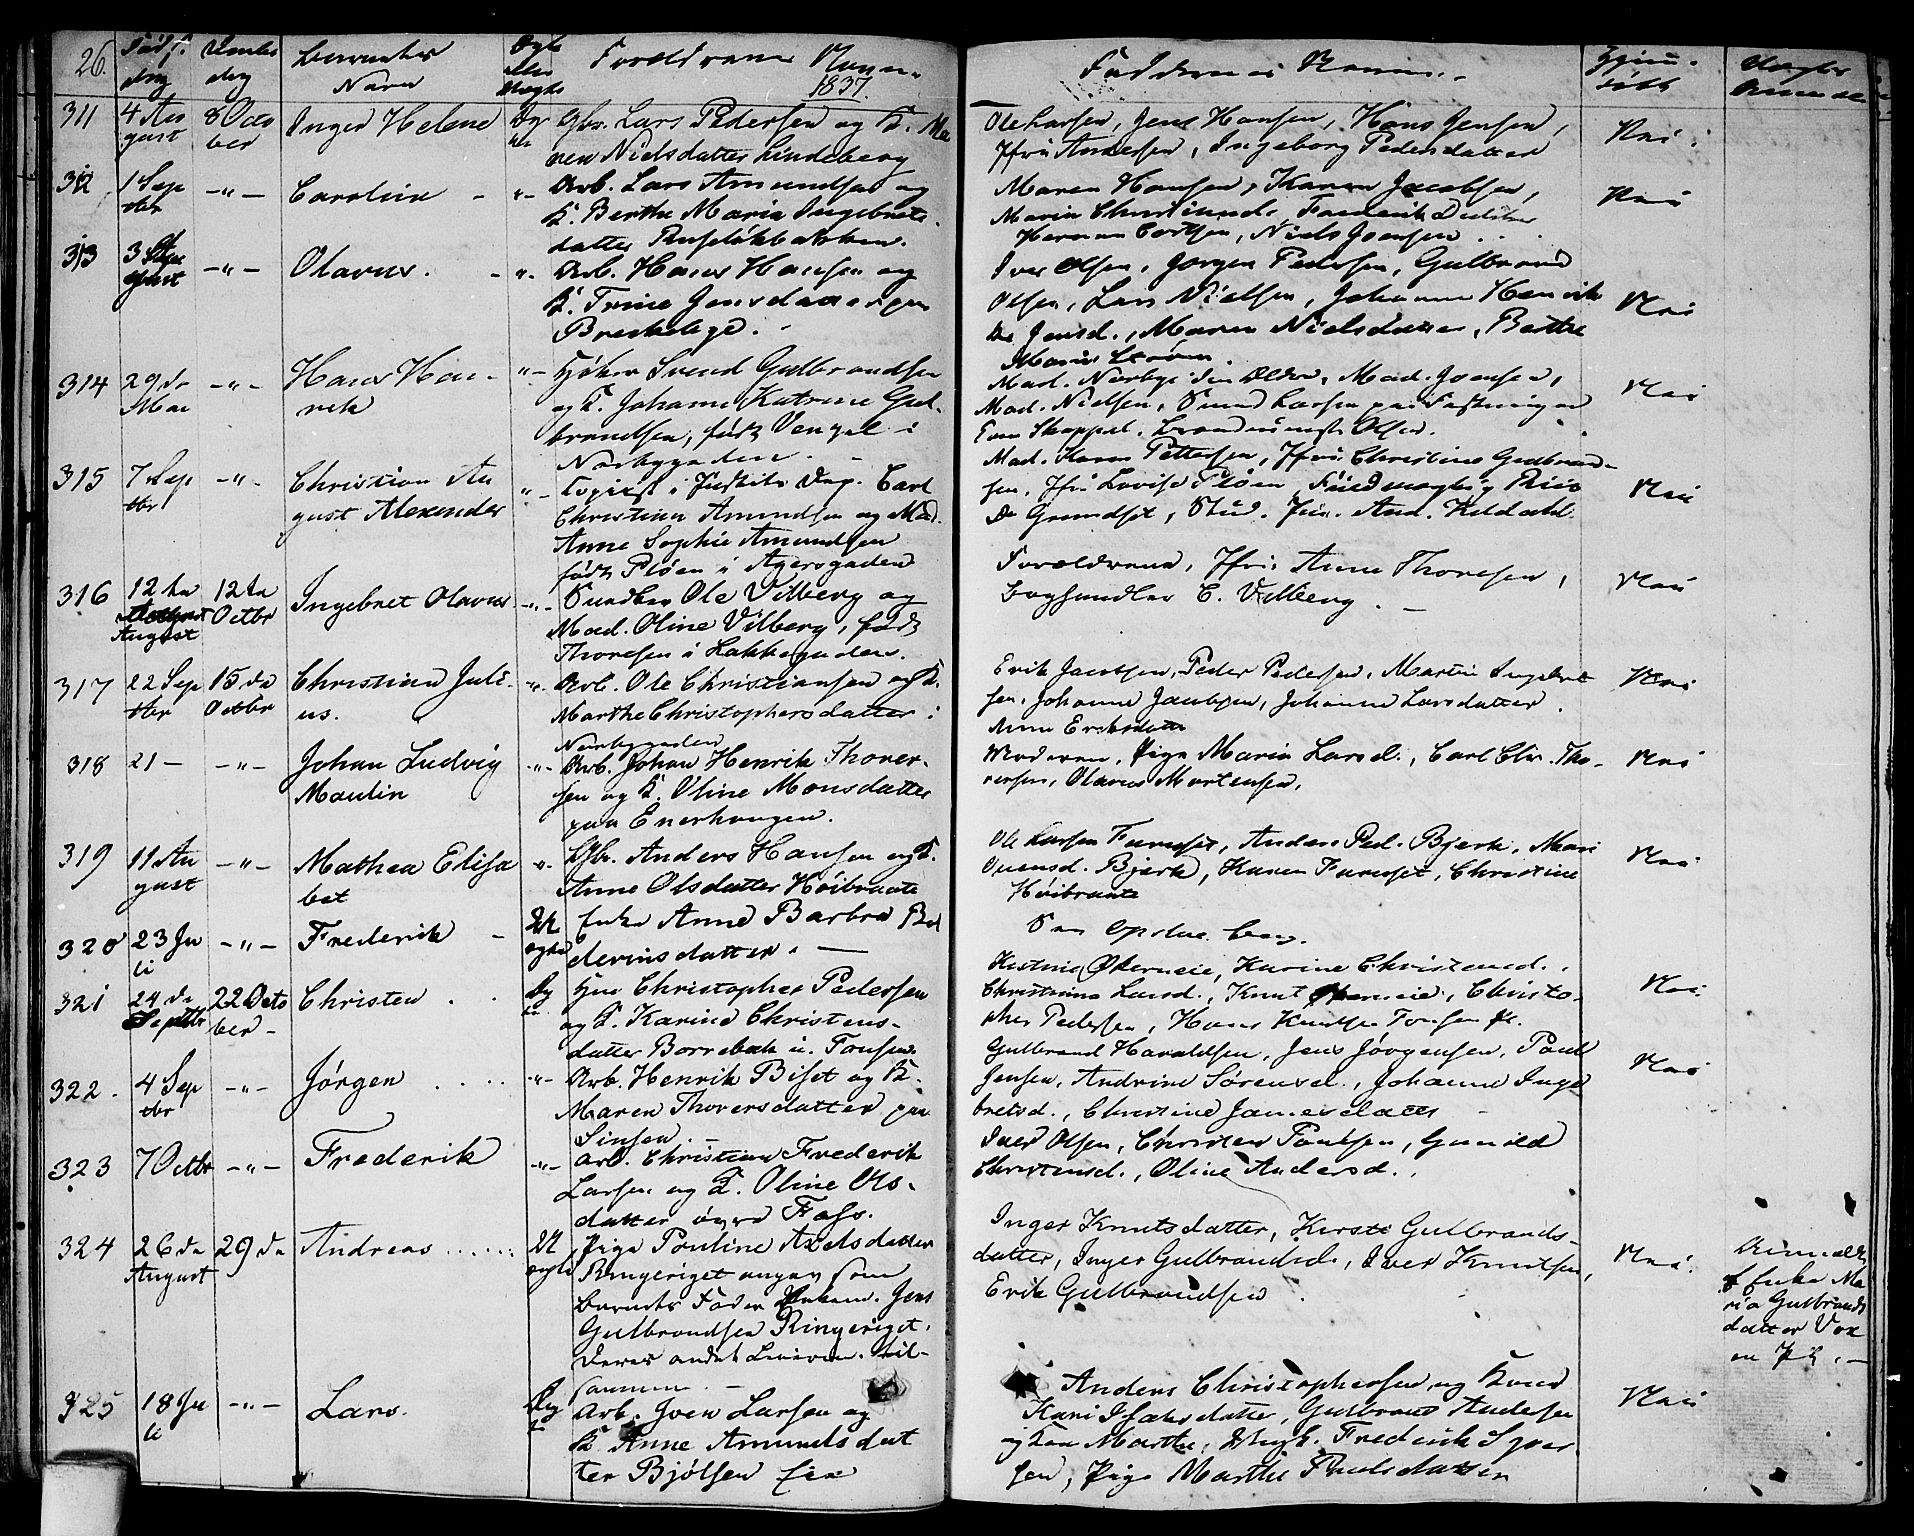 26. Født. dag Daabs dag Barnets Navn Ægte eller Uægte Forældrenes Navne. 1837.
Faddernes Navne.
311 4 August 8 October Inger Helene Ægte Gbr. Lars Pedersen og K. Ma
ren Nielsdatter Lindeberg
Ole Larsen, Jens Hansen, Hans Jensen,
Jfru Andersen, Ingeborg Pedersdatter
Nei
312 1 Sep tbr -"- Caroline - "- Arb. Lars Amundsen og
K. Berthe Maria Ingebrets
datter
Maren Hansen, Karen Jacobsen,
Marie Christiansd.
Niels Jensen
Nei
313 3 August -"- Olavus. - "- Arb. Hans Hansen og
K. Trine Jensdatter paa
Iver Olsen, Jørgen Pedersen, Gulbrand
Olsen, Lars Nielsen, Johanne Henrik
Jensd., Maren Nielsdatter, Berthe
Marie
Nei
314 29 de Mai -"- Hans Hen-
rik
"- Høker Svend Gulbrandsen
og K. Johanne Katrine Gul-
brandsen, født Vengel i
Norbygaden.
Mad. Norbye den Ældre, Mad. Jensen,
Mad. Nielsen, Svend Larsen paa Fæstningen
Even Skappel, Olsen.
Nei
315 7 Sep tbr -"- Christian Au
gust Alexander
"- Copiist i Justits Dep. Carl
Christian Amundsen og Mad.
Anne Sophie Amundsen
født Pløen i Agersgaden
Mad. Karen Pettersen, Jfru Christine Gulbrand-
sen, Jfru Lovise Pløen, Fuldmægtig
Grundset, Stud. Jur. And.
Nei
316 12 te August 12 te Octbr Ingebret Olavus -"- Snedker Ole Vilberg og
Mad. Oline Vilberg, født
Thoresen i Lakkegaden.
Forældrene, Jfru Anne Thoresen,
Boghandler C. Vilberg. -
Nei
317 22 Sep tbr 15 de Octbr Christian Juli-
us.
"- Arb. Ole Christiansen og K.
Marthe Christophersdatter i
Norbygaden
Erik Jacobsen, Peder Pedersen, Martin Ingebret
sen, Johanne Jacobsen, Johanne Larsdatter.
Anne Eriksdatter
Nei
318 21 - -"- Johan Ludvig
Maulin
-"- Arb. Johan Henrik Thorer-
sen og K. Oline Monsdatter
paa Enerhaugen.
Moderen, Pige Marie Larsd., Carl Chr. Tho-
rersen, Olavus Mortensen.
Nei
319 11 Au gust -"- Mathea Elisa
bet
"- Gbr. Anders Hansen og K.
Anne Olsdatter Høibraate
Ole Larsen Furuset, Anders Ped. Bjerke, Mari
Ovensd. Bjerke, Karen Furuset, Christine
Høibraate
Nei
320 23 Ju li -"- Frederik - Uægte Enke Anne Barbra
datter. -
321 24 de Septbr 22 Octo ber - Christen . . Ægte Hm Christopher Pedersen
og K. Karine Christens-
datter Borrebæk u. Tonsen.
Kistine Økerneie, Karine Christensd.,
Christiane Larsd., Knut Økerneie, Christo-
pher Pedersen, Hans Knutsen Tonsen
Nei
322. 4 Sep tbr -"- Jørgen . . . . . -"- Arb. Henrik Biset og K.
Maren Thorersdatter paa
Sinsen. -
Gulbrand Haraldsen, Jens Jørgensen, Poul
Jensen, Andrine Sørensd., Johanne Inge
bretsd., Christine
Nei
323 7 Octbr -"- Frederik -"- Arb. Christian Frederik
Larsen og K. Oline Ols-
datter øvre Foss.
Iver Olsen, Christen Poulsen, Gunild
Christensd., Oline Andersd.
324 26 de August 29 de Andreas . . . . . . Uægte Pige Pouline Axelsdatter
Ringeriget angav som
Barnets Fader Unkarl. Jens
Gulbrandsen Ringeriget.
Deres andet Leierm. til-
sammen. -
Inger Knutsdatter, Kirsti Gulbrands-
datter, Inger Gulbrandsd., Iver Knutsen,
Erik Gulbrandsen
Nei. Anmeldt
af Enke Ma
ria Gulbrands
datter Vox
en
325 18 Ju li -"- Lars. Ægte Arb. Iver Larsen og
K. Anne Amunds dat
ter Bjølsen Eie
Anders Christophersen og Kone
Kari Isaksdatter, Gulbrand Andersen
og Kone Marthe, Ungk. Frederik Syver
sen, Pige Marthe Poulsdatter
Nei